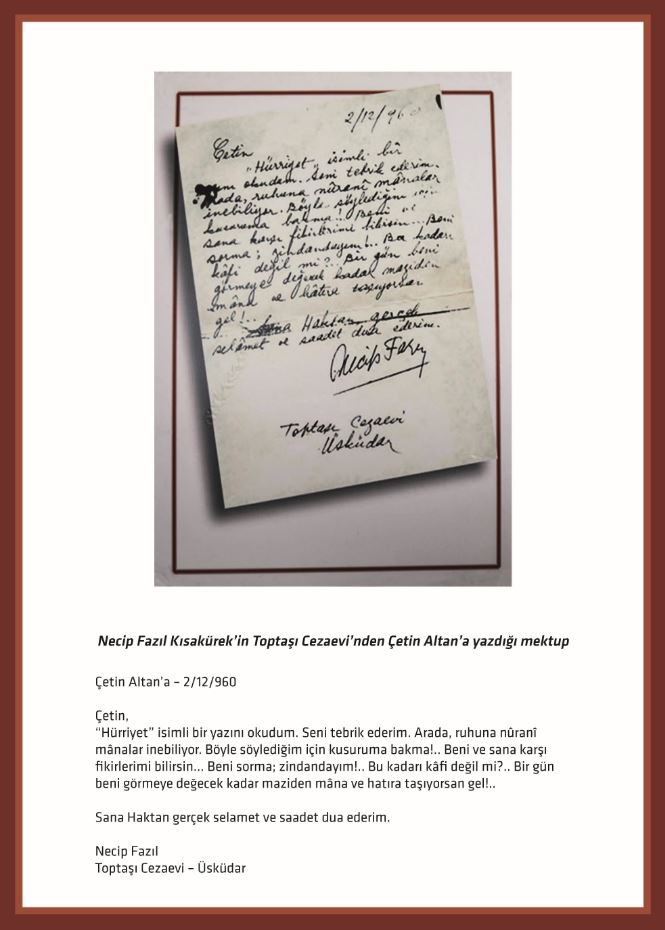 2/12/960
Çetin
"Hürriyet" isimli bir
okudum. Seni tebrik ederim.
Arada, ruhuna nûranî mânalar
inebiliyor. Böyle söylediğim için
kusuruma bakma!. Beni ve
sana karşı fikirlerimi bilirsin... Beni
sorma; zindandayım!.. Bu kadarı
kâfi değil mi?.. Bir gün beni
görmeye değecek kadar maziden
mâna ve hâtıra taşıyorsan
gel!..
Sana Haktan gerçek
selâmet ve saadet dua ederim.
Necip Fazıl
Toptaşı Cezaevi
Üsküdar
Necip Fazıl Kısakürek'in Toptaşı Cezaevi'nden Çetin Altan'a yazdığı mektup
Çetin Altan'a – 2/12/960
Çetin,
"Hürriyet" isimli bir yazını okudum. Seni tebrik ederim. Arada, ruhuna nûranî
mânalar inebiliyor. Böyle söylediğim için kusuruma bakma!.. Beni ve sana karşı
fikirlerimi bilirsin... Beni sorma; zindandayım!.. Bu kadarı kâfi değil mi?.. Bir gün
beni görmeye değecek kadar maziden mâna ve hatıra taşıyorsan gel!..
Sana Haktan gerçek selamet ve saadet dua ederim.
Necip Fazıl
Toptaşı Cezaevi – Üsküdar